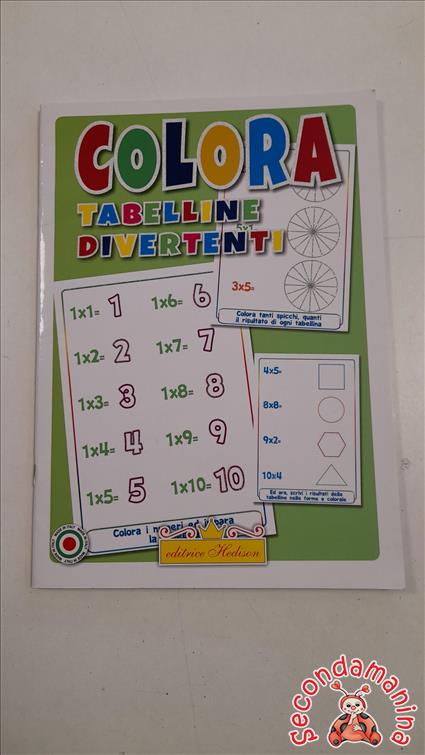 COLORA
TABELLINE
DIVERTENTI
5x1
3x5=
Colora tanti spicchi, quanti
il risultato di ogni tabellina
1x1= 1 1x6= 6
1x2= 2 1x7= 7
1x3= 3 1x8= 8
1x4= 4 1x9= 9
1x5= 5 1x10= 10
Colora i numeri ed impara
la
4x5=
8x8=
9x2=
10x4
Ed ora, scrivi i risultati delle
tabelline nelle forme e colorale
editrice Hedison
MADE IN ITALY
secondamanina